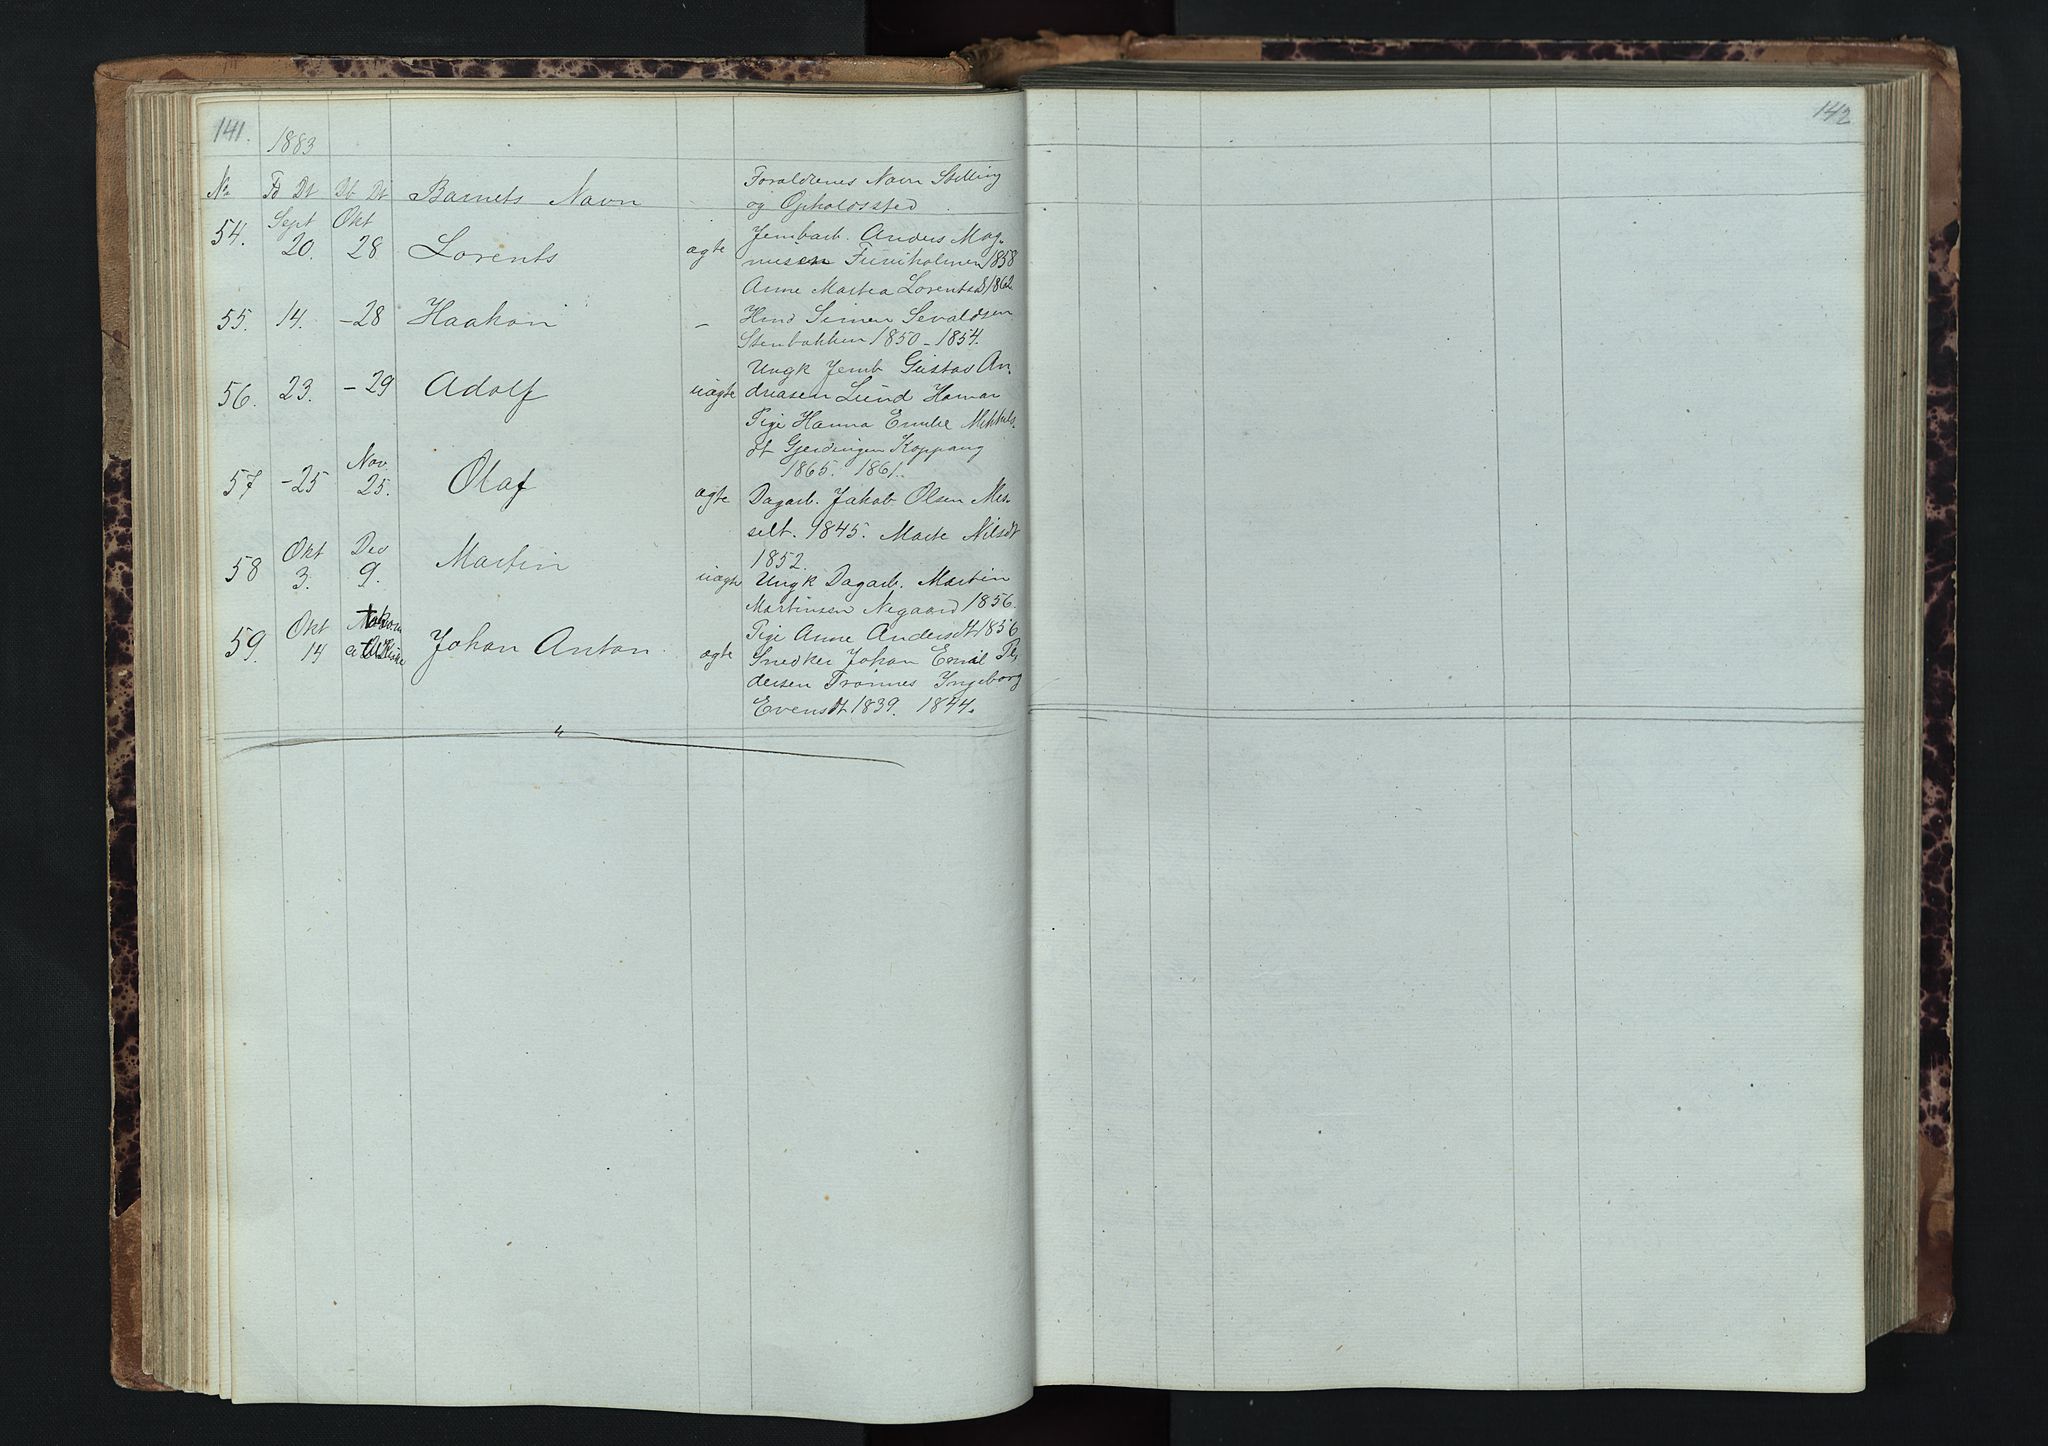 141.
1883
No Fd Dt Db Dt Barnets Navn Forældrenes Navn Stilling
og Opholdssted
54. Sept 20. Okt 28 Lorents ægte Jernbarb. Anders Mag-
nusen Furuholmen 1858
Anne Martea Lorentsd 1862
55. 14. - 28 Haakon - Hmd Simen Sevaldsen
Stenbakken 1850 - 1854.
56. 23. - 29 Adolf uægte Ungk Jernb Gustav An-
dreasen Lund Hamar
Pige Hanna Emilie Mikkels-
dt Gjerdingen Koppang
1865. 1861.
57 - 25 Nov. 25. Olaf ægte Dagarb. Jakob Olsen Mes-
selt. 1845. Marte Nilsdt
1852.
58 Okt 3. Dec 9. Martin uægte Ungk Dagarb. Martin
Martinsen Negaard 1856.
Pige Anne Andersdt 1856
59. Okt 14 Johan Anton. ægte Snedker Johan Emil Pe-
dersen Trønnes Ingeborg
Evensdt 1839. 1844.
142